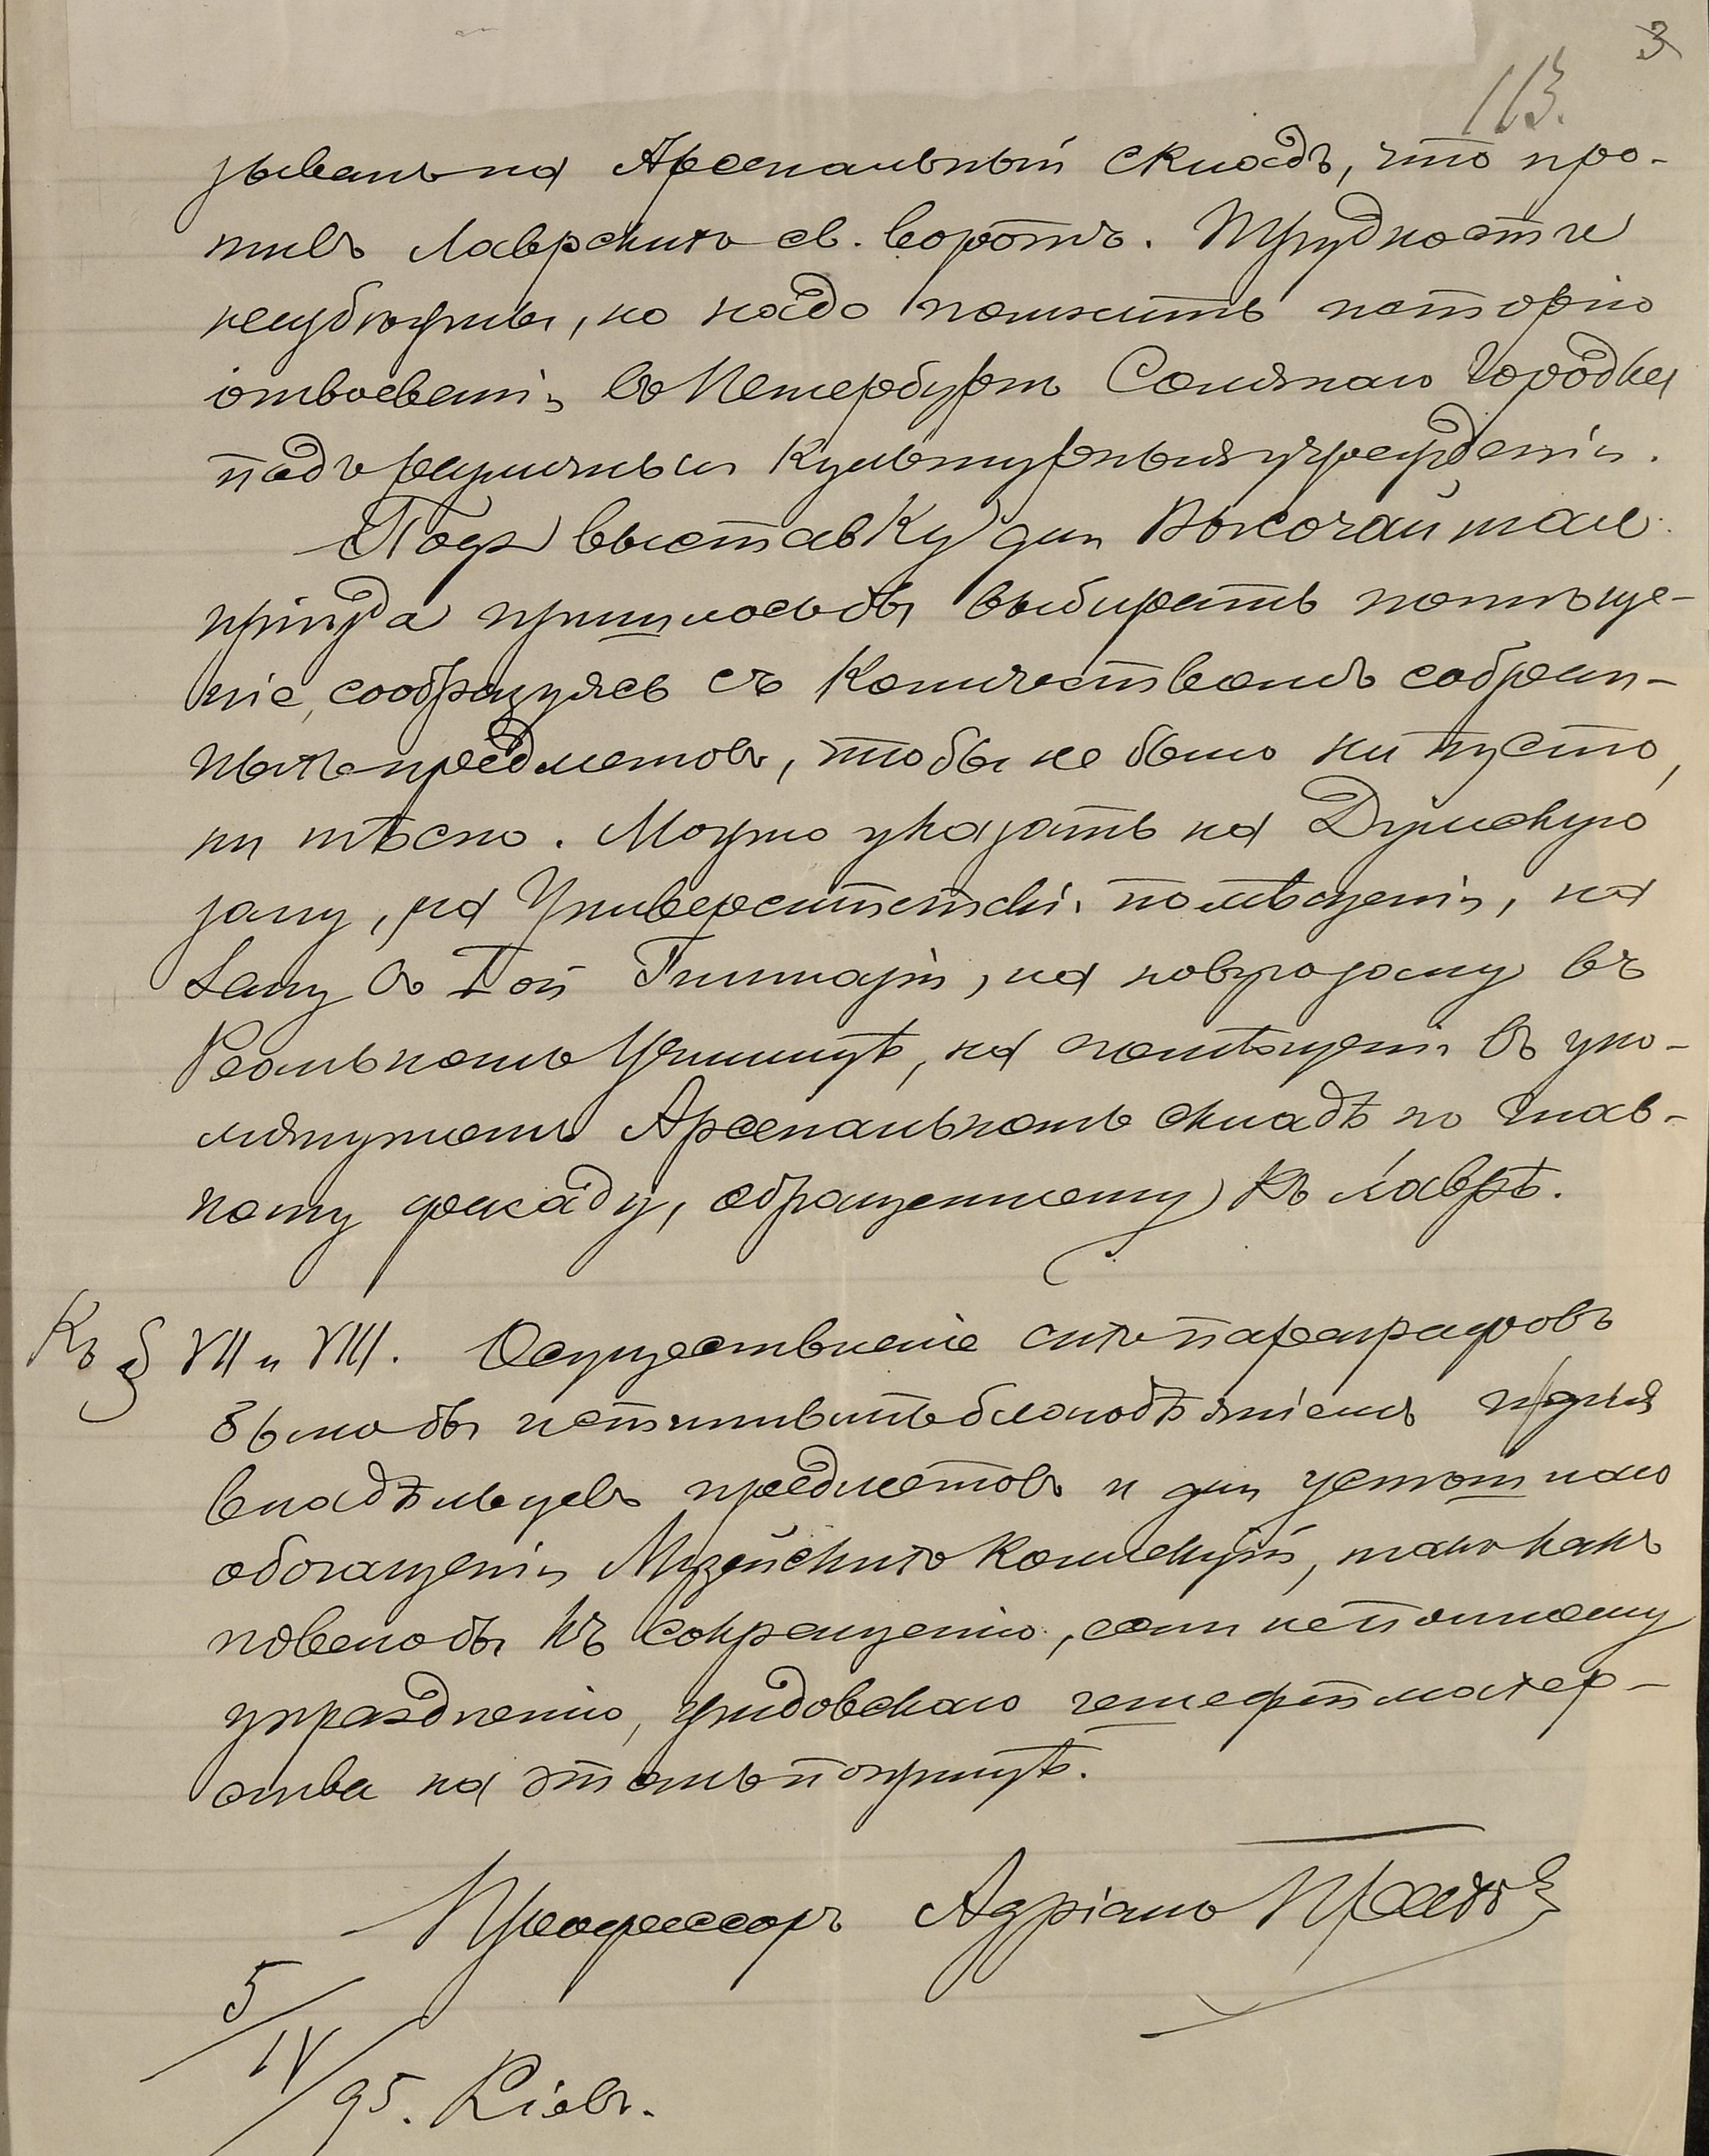 3
113.
зываль на Арсенальный складъ, что про-
тивъ Лаврскихъ св. воротъ. Трудности
неизбѣжны, но надо помнить исторію
отвоеванія въ Петербургѣ Солянаго Городка
подъ различныя культурныя учрежденія.
Подъ выставку для Высочайшаго
пріѣзда пришлось бы выбирать помѣще-
ніе, сообразуясь съ количествомъ собран-
ныхъ предметовъ, чтобы не было ни пусто,
ни тѣсно. Можно указать на Думскую
залу, на Университетскія помѣщенія, на
залу въ I ой Гимназіи, на новую залу въ
Реальномъ Училищѣ, на помѣщенія въ упо-
мянутомъ Арсенальномъ складѣ по глав-
ному фасаду, обращенному къ Лаврѣ.
Къ § VII и VIII. Осуществленіе сихъ параграфовъ
было бы истиннымъ благодѣяніемъ и для
владѣльцевъ предметовъ и для успѣшнаго
обогащенія Музейскихъ коллекцій, такъ какъ
повело бы къ сокращенію, если не полному
упраздненію, жидовскаго гешефтмахер-
ства на этомъ поприщѣ.
Профессоръ Адріанъ Праховъ
5/IV/95. Кіевъ.